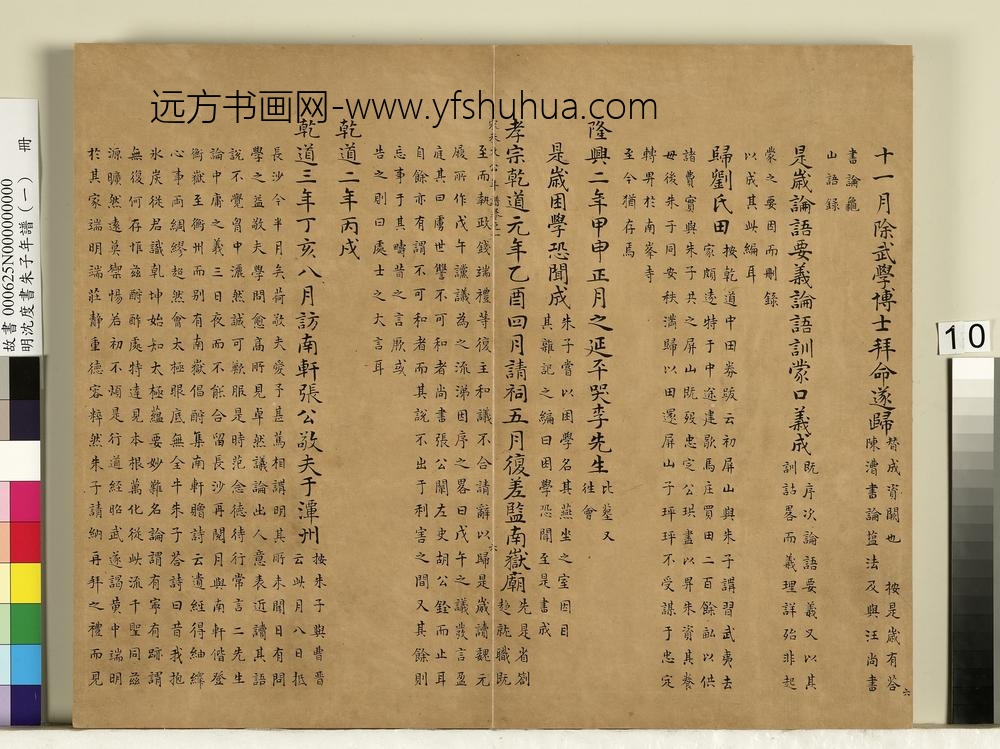 远方书画网-www.yfshuhua.com
故書 000625N000000000 冊
明沈度書朱子年譜(一)
10
十一月除武學博士拜命遂歸替成資闕也 按是歲有答
陳漕書論鹽法及與汪尚書
書論龜
山語錄
是歲論語要義論語訓蒙口義成既序次論語要義又以其
訓詁畧而義理詳殆非起
蒙之要因而刪錄
以成其此編耳
歸劉氏田按乾道中田券跋云初屏山與朱子講習武夷去
家頗遠特于中途建歇馬庄買田二百餘畝以供
諸費實與朱子共之屏山既歿忠定公珙盡以畀朱資其養
母後朱子同安秩滿歸以田還屏山子玶玶不受謀于忠定
轉畀於南峯寺
至今猶存焉
隆興二年甲申正月之延平哭李先生比塟又
徃會
是歲困學恐聞成朱子嘗以困學名其燕坐之室因目
其雜記之編曰困學恐聞至是書成
孝宗乾道元年乙酉四月請祠五月復差監南嶽廟先是省劄
趣就職既
至而執政錢端禮等復主和議不合請辭以歸是歲讀魏元
履所作戊午讜議為之流涕因序之畧曰戊午之議發言盈
庭其曰虜世讐不可和者尚書張公闡左史胡公銓而止耳
自餘亦有謂不可和者而其說不出于利害之間又其餘則
忘事于其疇昔之言厥或
告之則曰處士之大言耳
六
乾道二年丙戌
乾道三年丁亥八月訪南軒張公敬夫于潭州按朱子與曹晉
云此月八日抵
長沙今半月矣荷敬夫愛予甚篤相講明其所未聞日有問
學之益敬夫學問愈高所見卓然議論出人意表近讀其語
說不覺胷中灑然誠可歎服是時范念德待行常言二先生
論中庸之義三日夜而不能合留長沙再閱月與南軒偕登
衡嶽至衡州而別有南嶽倡酧集南軒贈詩云遺經得紬繹
心事兩綢繆超然會太極眼底無全牛朱子荅詩曰昔我抱
氷炭從君識乾坤始知太極蘊要妙難名論謂有寧有跡謂
無復何存惟茲酧酢處特達見本根萬化從此流千聖同茲
源曠然遠莫禦惕若初不煩是行道經昭武遂謁黃中端明
於其家端明端莊靜重德容粹然朱子請納再拜之禮而見
六